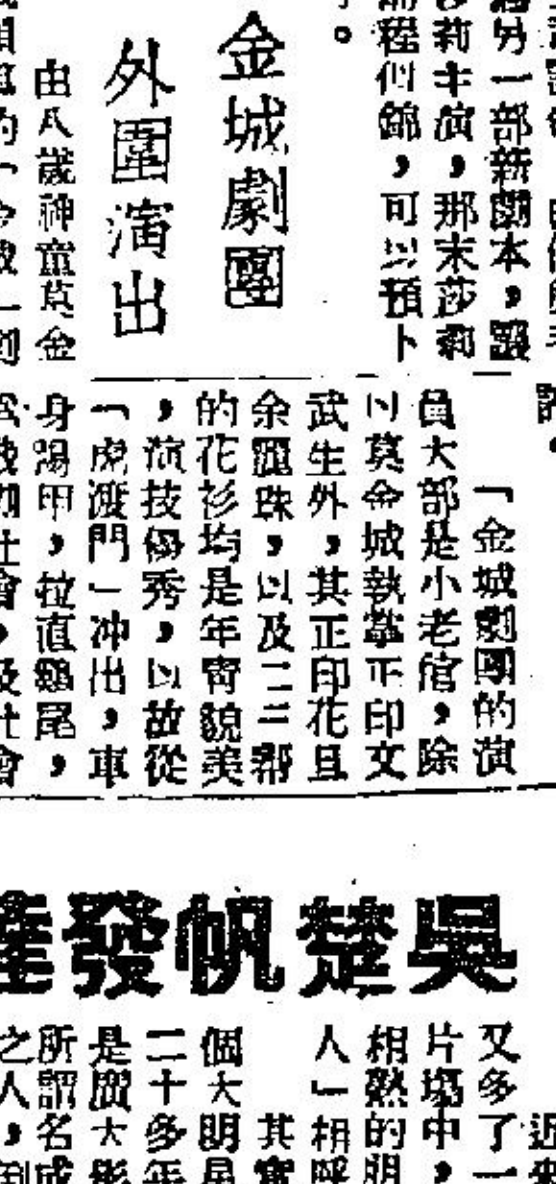 另一部新劇本，讓
莎莉主演，那末莎莉
程似錦，可以預卜
。
金城劇團
外圍演出
由八歲神童莫金
「金城演劇團的演
員大部是小老倌，除
以莫金城執掌正印文
武生外，其正印花旦
余麗珠，以及二三幫
的花衫均是年青貌美
，演技優秀，以故從
「虎渡門」冲出，車
身濕甲，拉直雞尾，
吳楚帆發達
近來
又多了一
片塲中，
相熟的朋
人」相呼
其實
個大明星
二十多年
是廣大影
所謂名成
之人，到